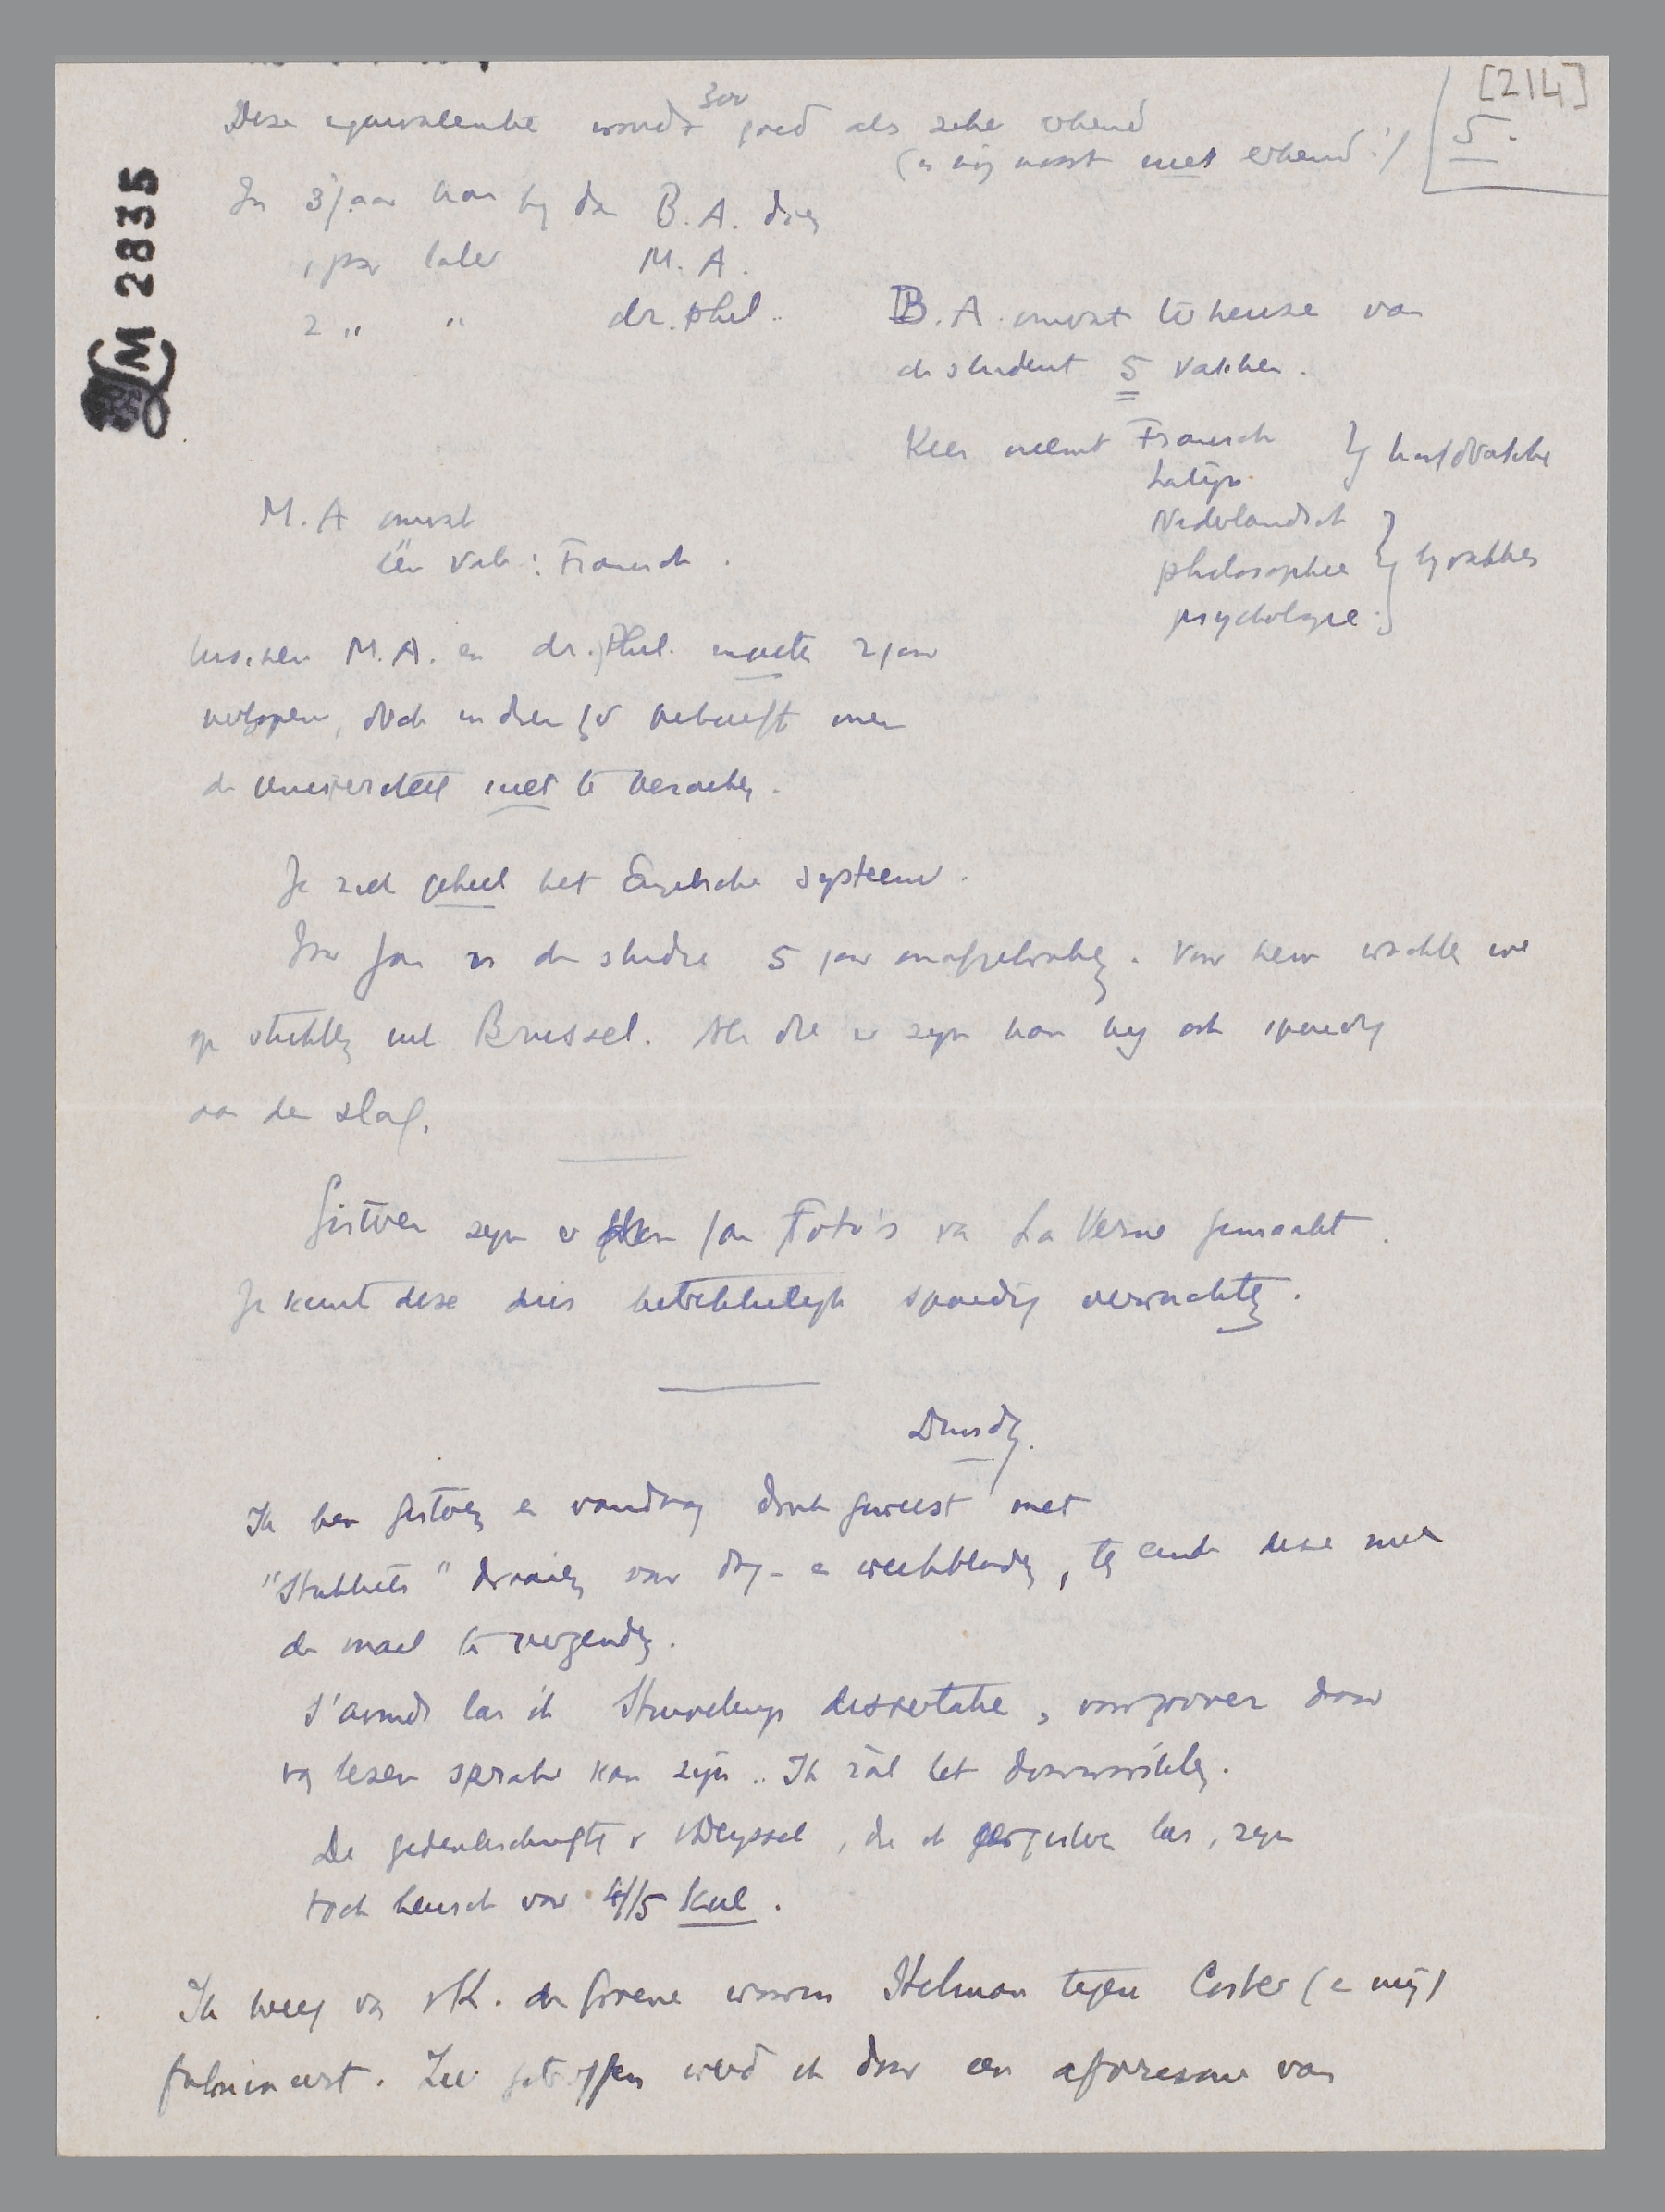 [214]
5.
LM 2835
Deze equivalentie wordt zoo goed als zeker erkend
(is nog nooit niet erkend!)
In 3 jaar kan hij dan B.A. zijn
1 jaar later M.A.
2 " " dr. phil.
B.A. omvat ter keuze van
de student 5 vakken.
Kees neemt Fransch
Latijn } hoofdvakken
Nederlandsch
philosophie } bijvakken
psychologie
M.A omvat
één vak: Fransch.
tusschen M.A. en dr. phil. moeten 2 jaar
verlopen, doch in dien tijd behoeft men
de Universiteit niet te bezoeken.
Je ziet geheel het Engelsche systeem.
Voor Jan is de studie 5 jaar onafgebroken. Voor hem wachten we
op stukken uit Brussel. Als die er zijn kan hij ook spoedig
aan den slag.
Gisteren zijn er foto's van La Verne gemaakt.
Je kunt deze dus betrekkelijk spoedig verwachten.
Dinsdag.
Ik ben gisteren en vandaag druk geweest met
"Stukkies" draaien voor dag- en weekbladen, ten einde deze met
de mail te verzenden.
s'avonds las ik Stuivelings dissertatie, voorzoover daar
van lezen sprake kan zijn.. Ik zàl het doorworstelen.
De gedenkschriften v. v Deyssel, die ik gisteren las, zijn
toch heusch voor 4/5 kul.
Ik kreeg van v K. de Groene waarin Helman tegen Coster (en mij)
fulmineert. Zeer getroffen werd ik door een aforisme van